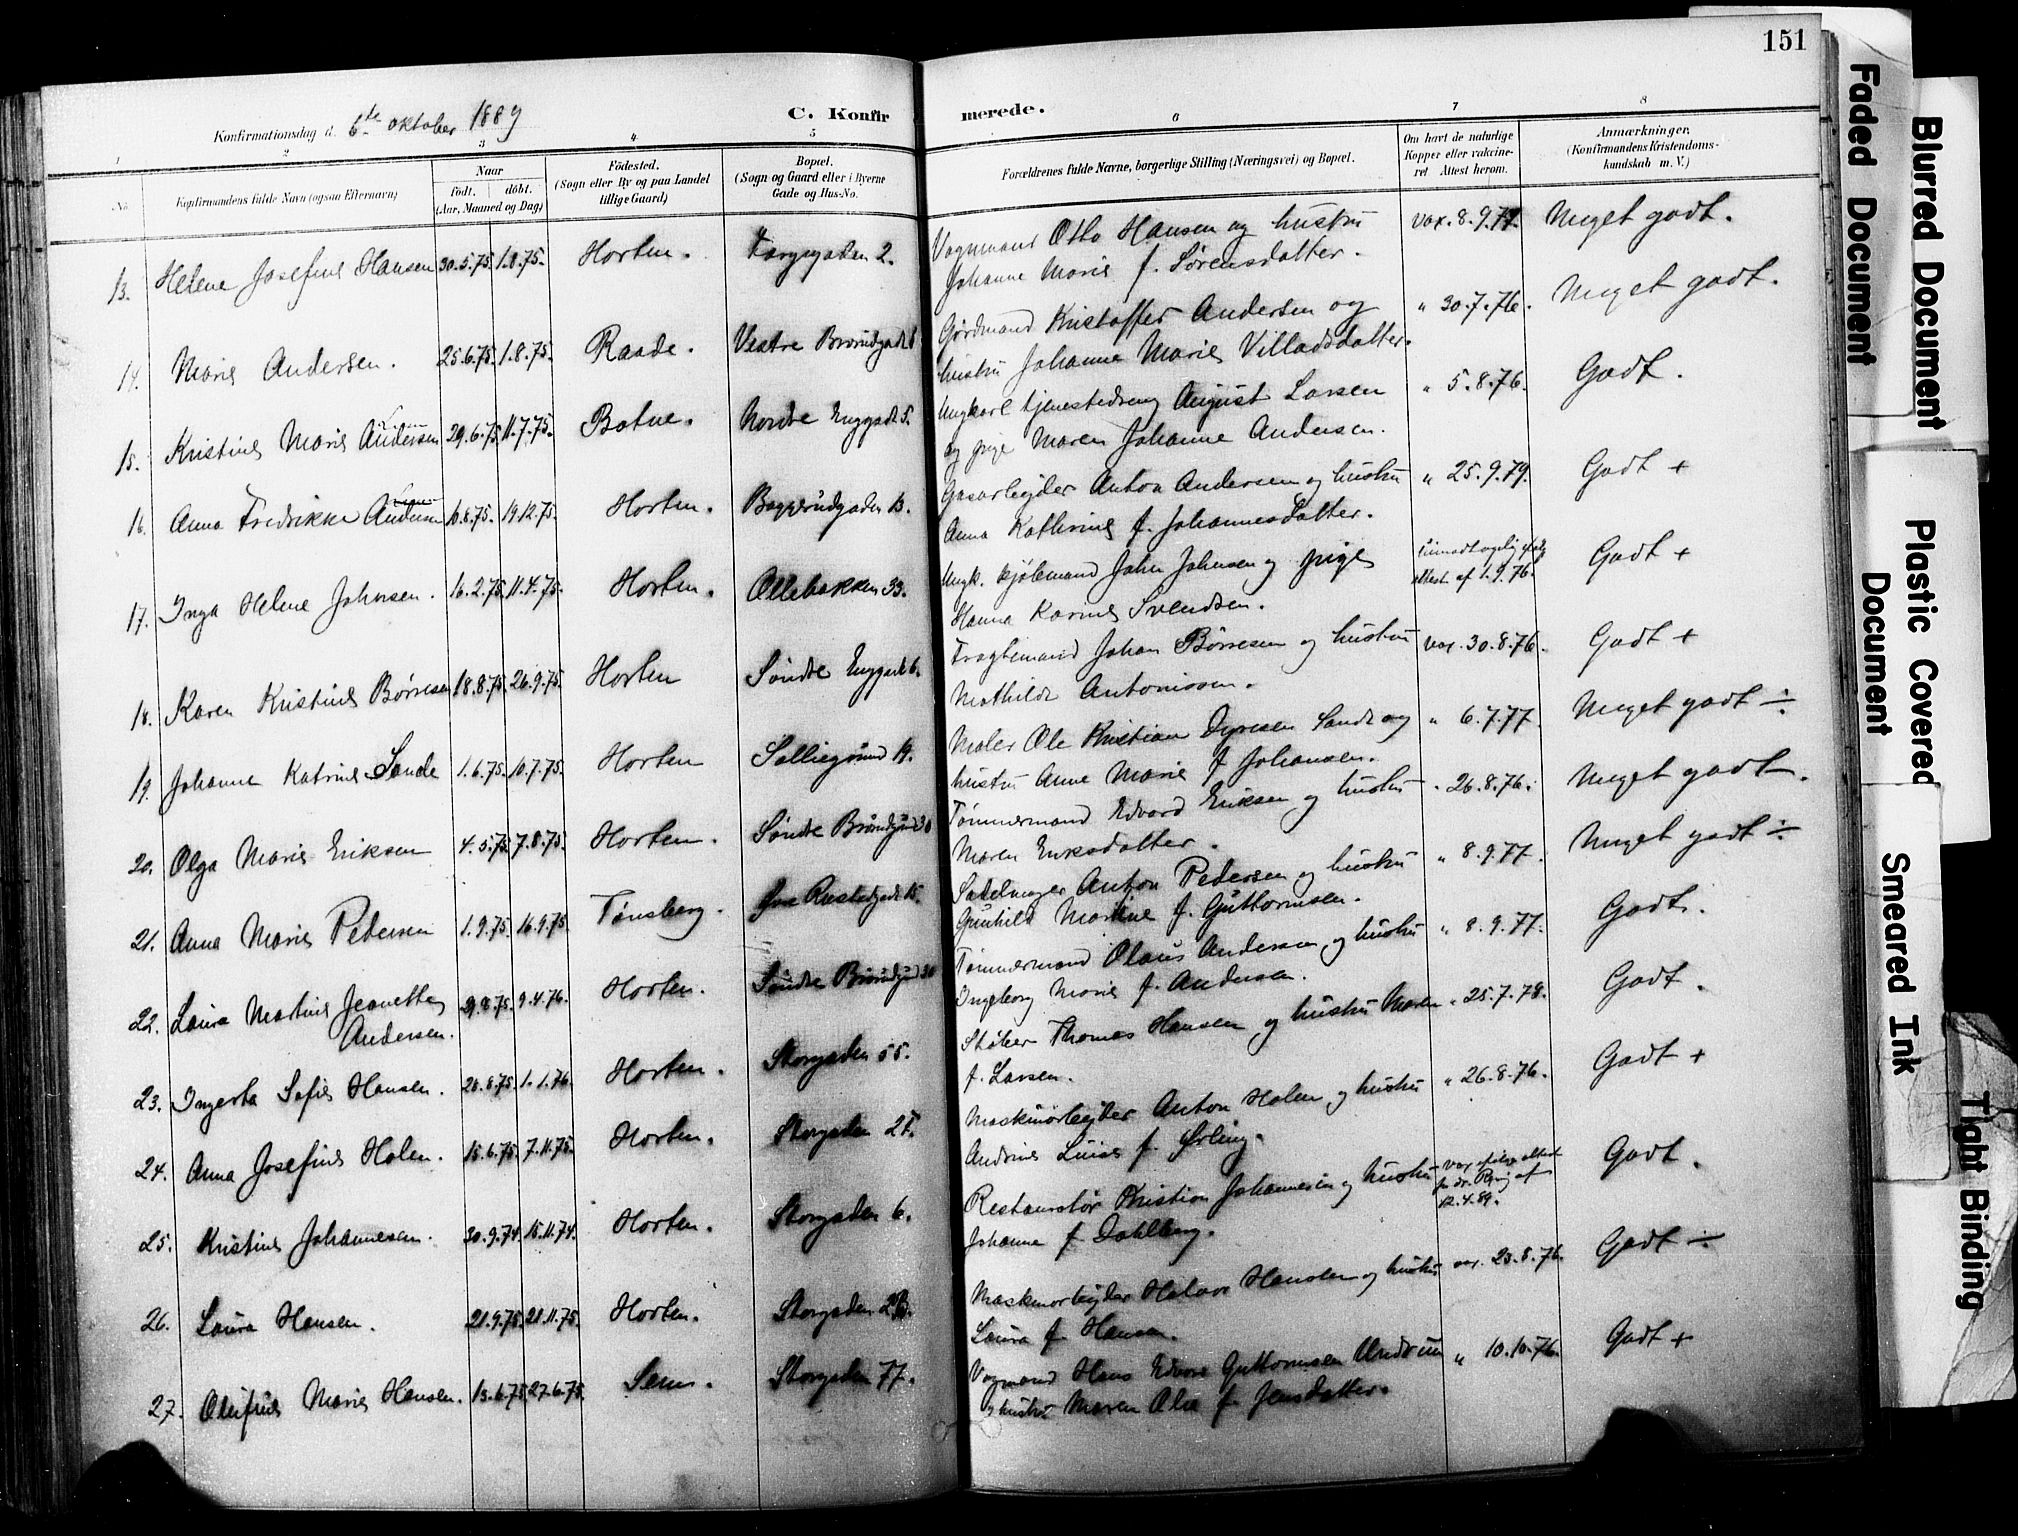 151
Konfirmationsdag d. 6te oktober 1889
C. Konfirmerede.
1 2 3 4 5 6 7 8
No.
Konfirmandens fulde Navn (ogsaa Efternavn)
Naar
født. døbt.
(Aar, Maaned og Dag)
Fødested.
(Sogn eller By og paa Landet
tillige Gaard)
Bopæl.
(Sogn og Gaard eller i Byerne
Gade og Hus-No.
Forældrenes fulde Navne, borgerlige Stilling (Næringsvei) og Bopæl.
Om havt de naturlige
Kopper eller vakcine-
ret Attest herom.
Anmærkninger.
(Konfirmandens Kristendoms-
kundskab m. V.)
13. Helene Josefine Hansen 30.5.75. 1.8.75. Horten. 2. Vognmand Otto Hansen og hustru vax. 8.9.77. Meget godt.
Johanne Marie f. Sørensdatter.
14. Marie Andersen. 25.6.75. 1.8.75. Raade. Vestre Gårdmand Kristoffer Andersen og " 30.7.76. Meget godt.
hustru Johanne Marie Villadsdatter.
15. Kristine Marie Andersen 29.6.75. 11.7.75. Botne. Nordre Enggade 5. Ungkarl tjenestedreng August Larsen " 5.8.76. Godt.
og pige Maren Johanne Andersen.
16. Anna Fredrikke 10.8.75. 19.12.75. Horten. Baggerudgaden 13. Gasarbejder Anton Andersen og hustru " 25.9.79. Godt +
Anna Kathrine f. Johannesdatter.
17. Inga Helene Johnsen. 16.2.75. 11.4.75. Horten. Ollebakken 33. Ungk. kjøbmand John Johnsen og pige attest af 1.9.76. Godt +
Hanna Karine Svendsen.
18. Karen Kristine Børresen 18.8.75. 26.9.75. Horten Søndre Enggade 6. Fragtemand Johan Børresen og hustru vax. 30.8.76. Godt +
Mathilde Antonissen.
19. Johanne Katrine Sande 1.6.75. 10.7.75. Horten 19. Maler Ole Kristian Dyresen Sande og " 6.7.77. Meget godt ÷
hustru Anne Marie f. Johansen.
20. Olga Marie Eriksen 4.5.75. 7.8.75. Horten. Søndre 30 Tømmermand Edvard Eriksen og hustru " 26.8.76. Meget godt.
Maren Eriksdatter.
21. Anna Marie Pedersen 1.9.75. 16.9.75. Tønsberg. Sadelmager Anton Pedersen og hustru " 8.9.77. Meget godt ÷
Gunhild Martine f. Guttormsen.
22. Laura Martine Jeanette 9.4.76. Horten. Søndre 30 Tømmermand Olaus Andersen og hustru " 8.9.77. Godt.
Andersen. Ingeborg Marie f. Andersen.
23. Ingerta Sofie Hansen. 26.8.75. 1.1.76. Horten. Storgaden 55. Støber Thomas Hansen og hustru Maren " 25.7.78. Godt.
f. Larsen.
24. Anna Josefine Holen. 15.6.75. 7.11.75. Horten. Storgaden Maskinarbejder Anton Holen og hustru " 26.8.76. Godt +
Andrine Luise f. Ørling.
25. Kristine Johannesen. 30.9.74. 15.11.74. Horten. Storgaden 6. Restauratør Kristian Johannesen og hustru vax. ifølge attest 12.4.89. Godt.
Johanne f. Dahlberg.
26. Laura Hansen. 21.9.75. 21.11.75. Horten. Storgaden Maskinarbejder Halvor Hansen og hustru vax. 23.8.76. Godt ÷
Laura f. Hansen.
27. Olefine Marie Hansen. 13.6.75. 27.6.75. Sem. Storgaden 77. Vognmand Hans Edvard Guttormsen Undrum " 10.10.76. Godt +
og hustru Maren Olea f. Jensdatter.
Faded Document
Blurred Document
Plastic Covered
Document
Smeared Ink
Tight Binding